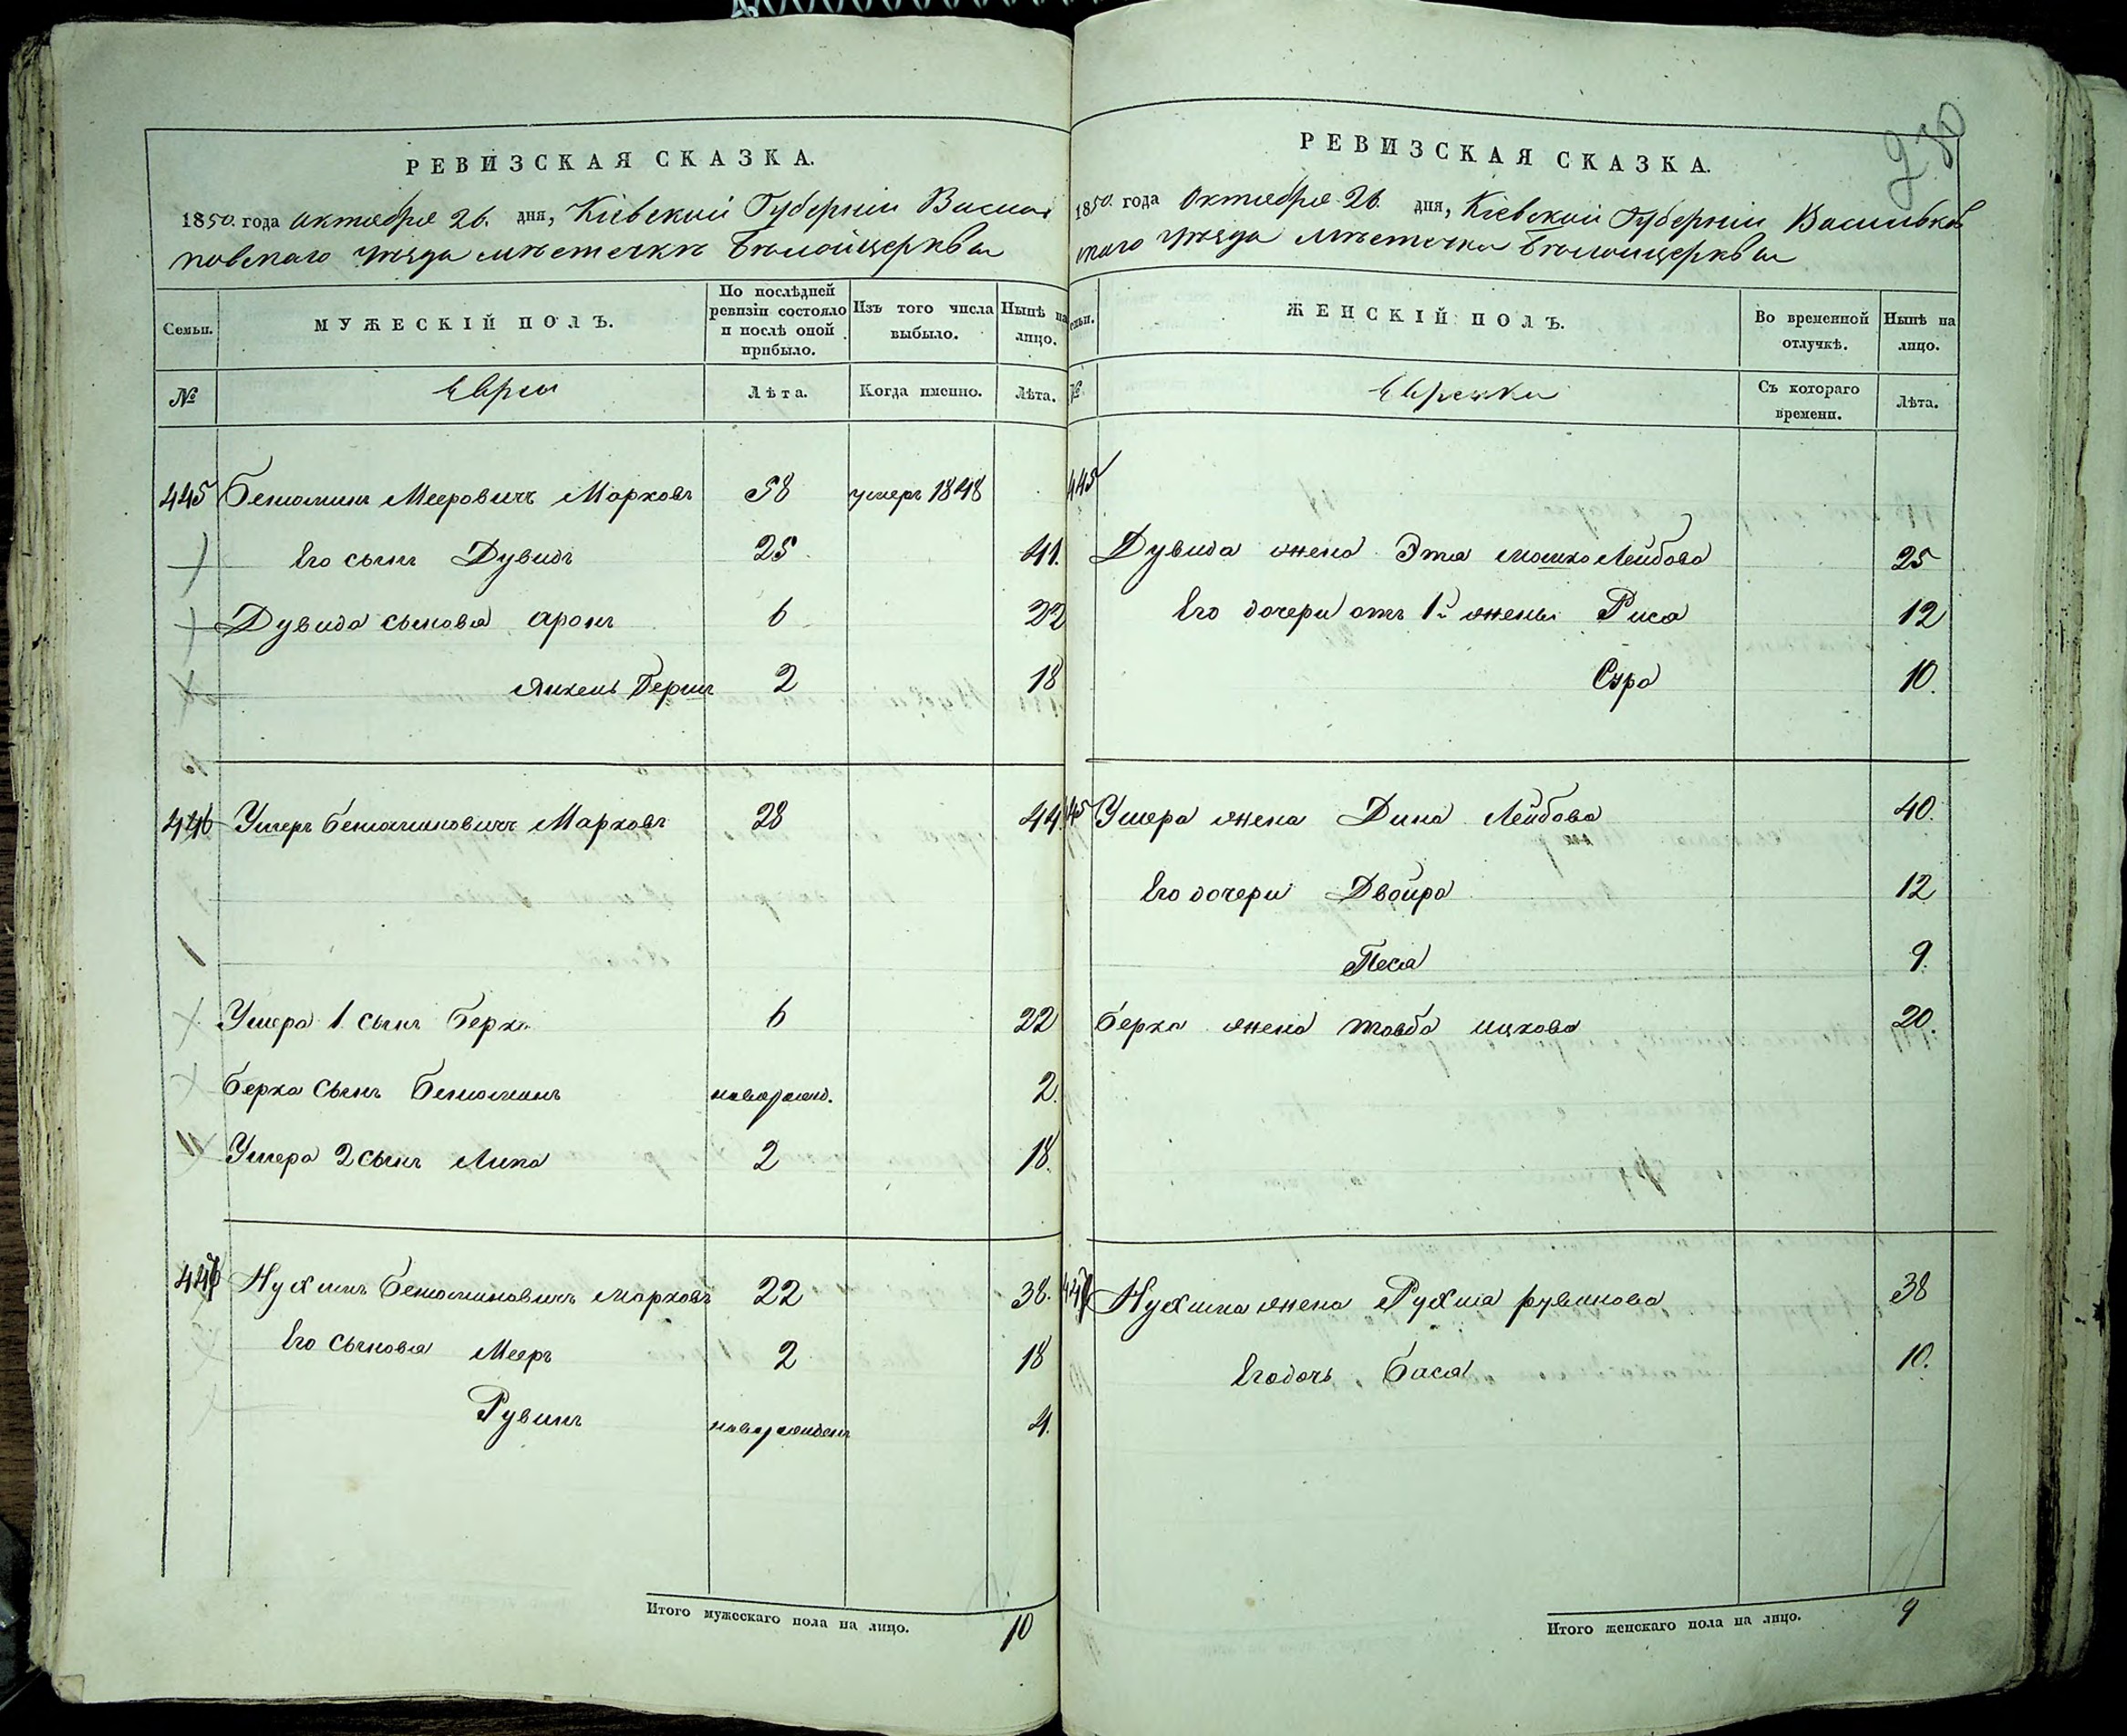 230
РЕВИЗСКАЯ СКАЗКА.
1850. года октября 26. дня, Кіевской Губерніи Василь
ковскаго уѣзда мѣстечка Бѣлойцеркви
Семьи.
МУЖЕСКІЙ ПОЛЪ.
По послѣдней ревизіи состояло и послѣ оной прибыло.
Изъ того числа выбыло.
Нынѣ на лицо.
№
Евреи
Лѣта.
Когда именно.
Лѣта.
445 Бенюминъ Мееровичъ Марковъ 58 умеръ 1848
Его сынъ Дувидъ 25 41.
Дувида сыновья Аронъ 6 22
Янкель Берко 2 18
446 Ушеръ Бенюминовичъ Марковъ 28 44
Ушера 1. сынъ Берко 6 22
Берка сынъ Бенюминъ новорожд. 2.
Ушера 2 сынъ Липа 2 18.
447 Нухимъ Бенюминовичъ Марковъ 22 38.
Его сыновья Мееръ 2 18
Рувинъ новорожденъ 4.
Итого мужескаго пола на лицо. 10
РЕВИЗСКАЯ СКАЗКА.
1850. года Октября 26. дня, Кіевской Губерніи Васильков
скаго уѣзда мѣстечка Бѣлойцеркви
Семьи.
ЖЕНСКІЙ ПОЛЪ.
Во временной отлучкѣ.
Нынѣ на лицо.
№
Еврейки
Съ котораго времени.
Лѣта.
445
Дувида жена Эта Мошко Лейбова 25
Его дочери отъ 1й жены Риса 12
Сура 10.
Ушера жена Дина Лейбова 40.
Его дочери Двойра 12
Песя 9.
Берка жена Товба Ицкова 20.
447 Нухима жена Рухля Рувинова 38
Его дочь Бася 10.
Итого женскаго пола на лицо. 9